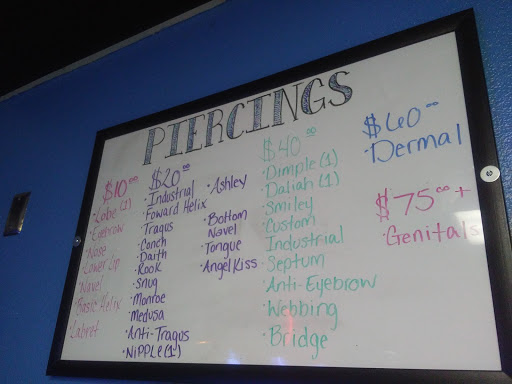 PIERCINGS
$10.00
·Lobe (1)
·Eyebrow
·Nose
·Lower Lip
·Navel
·Basic Helix
·Labret
$20.00
·Industrial
·Foward Helix
·Tragus
·Conch
·Daith
·Rook
·Snug
·Monroe
·Medusa
·Anti-Tragus
·NiPPLe (1)
·Ashley
·Bottom
Navel
·Tongue
·Angel Kiss
$40.00
·Dimple (1)
·Daliah (1)
·Smiley
·Custom
Industrial
·Septum
·Anti-Eyebrow
·Webbing
·Bridge
$60.00
·Dermal
$75.00+
·Genitals